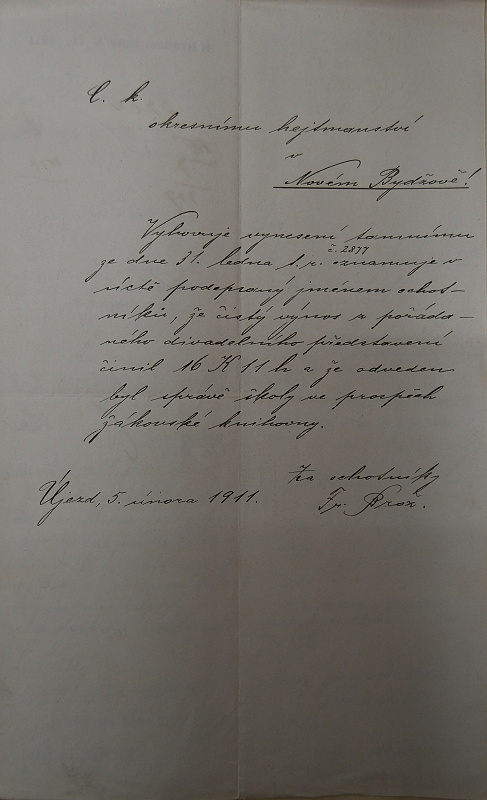 C. k.
okresnímu hejtmanství
v
Novém Bydžově!
Vyhovuje vynesení tamnímu
č. 2877
ze dne 31. ledna t. r. oznamuje v
úctě podepsaný jménem ochot-
níků, že čistý výnos z pořáda-
ného divadelního představení
činil 16 K 11 h a že odveden
byl správě školy ve prospěch
žákovské knihovny.
Za ochotníky
Újezd, 5. února 1911.
Fr. Brož.